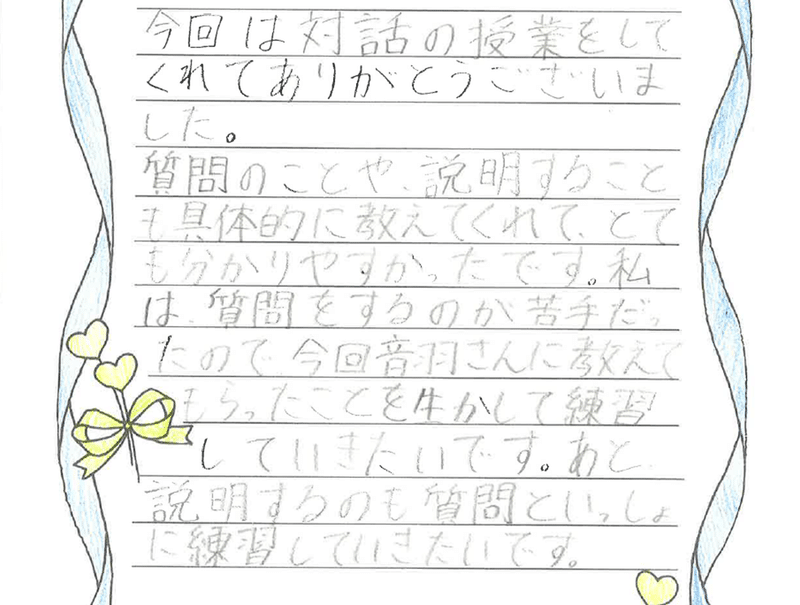 今回は対話の授業をして
くれてありがとうございま
した。
質問のことや、説明すること
も具体的に教えてくれて、とて
も分かりやすかったです。私
は、質問をするのが苦手だっ
たので、今回音羽さんに教えて
もらったことを生かして練習
していきたいです。あと、
説明するのも質問といっしょ
に練習していきたいです。